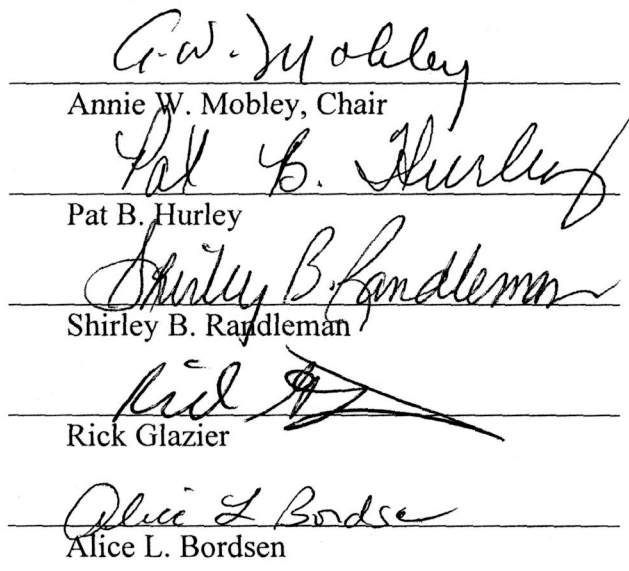 A. W. Mobley
Annie W. Mobley, Chair
Pat B. Hurley
Pat B. Hurley
Shirley B. Randleman
Shirley B. Randleman
Rick
Rick Glazier
Alice L Bordsen
Alice L. Bordsen